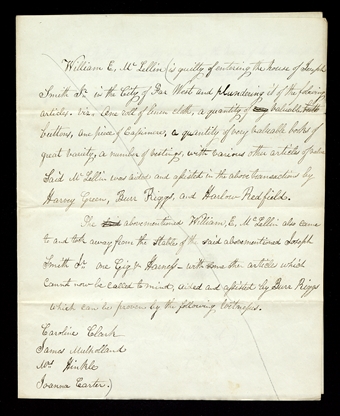 William E. McLellin (is guilty of entering the house of Joseph
Smith Jr. in the City of Far West and plundering it of the following
articles. viz. One roll of linen cloth, a quantity of valuable
buttons, one piece of Casimere, a quantity of very valuable books of
great variety, a number of vestings, with various other articles of value
Said McLellin was aided and assisted in the above transactions by
Harvey Green, Burr Riggs, and Harlow Redfield.
The abovementioned William, E, McLellin also came
to and took away from the stable of the said abovementioned Joseph
Smith Jr. one Gig & Harness with some other articles which
cannot now be called to mind, aided and assisted by Burr Riggs
which can be proven by the following witnesses.
Caroline Clark
James Mulholland
Mrs Hinkle
Joanna Carter.)